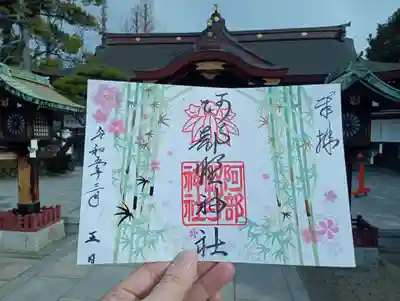 奉拝
阿部野神社
阿部
神社
令和五年三月
五日